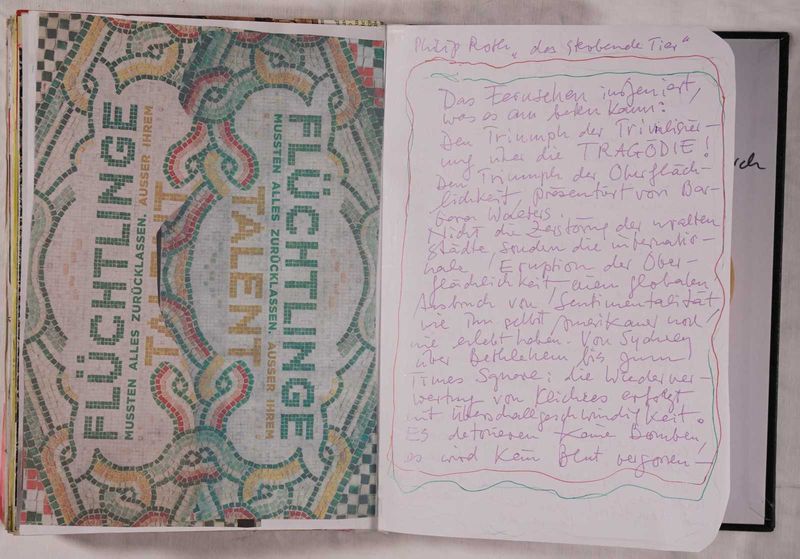 FLÜCHTLINGE
MUSSTEN ALLES ZURÜCKLASSEN. AUSSER IHREM
TALENT
FLÜCHTLINGE
MUSSTEN ALLES ZURÜCKLASSEN. AUSSER IHREM
TALENT
Philip Roth „das sterbende Tier"
Das Fernsehen inszeniert,
was es am besten kann:
Den Triumph der Trivialisier-
ung über die TRAGÖDIE!
Den Triumph der Oberfläch-
lichkeit, präsentiert von Bar-
bara Walters.
Nicht die Zerstörung der uralten
Städte, sondern die internatio-
nale Eruption der Ober-
flächlichkeit, einen globalen
Ausbruch von Sentimentalität,
wie ihn selbst Amerikaner noch
nie erlebt haben. Von Sydney
über Bethlehem bis zum
Times Square: die Wiederver-
wertung von Klichees erfolgt
mit Überschallgeschwindigkeit.
Es detonieren keine Bomben,
es wird kein Blut vergossen –
rch